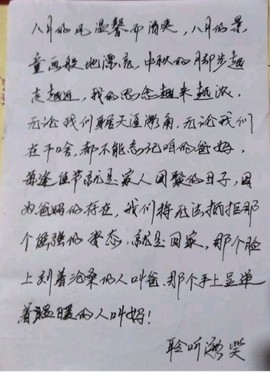 八月的风温馨而清爽，八月的景
童画般地漂亮，中秋的脚步越
走越近，我的思念越来越浓，
无论我们走天涯海角，无论我们
在干啥，都不能忘记咱的爸妈，
每逢佳节就是家人团聚的日子，因
为爸妈的存在，我们将无法拥抱那
个倔强的姿态，就是回家，那个脸
上刻着沧桑的人叫爸，那个手上显单
着温暖的人叫妈！
聆听